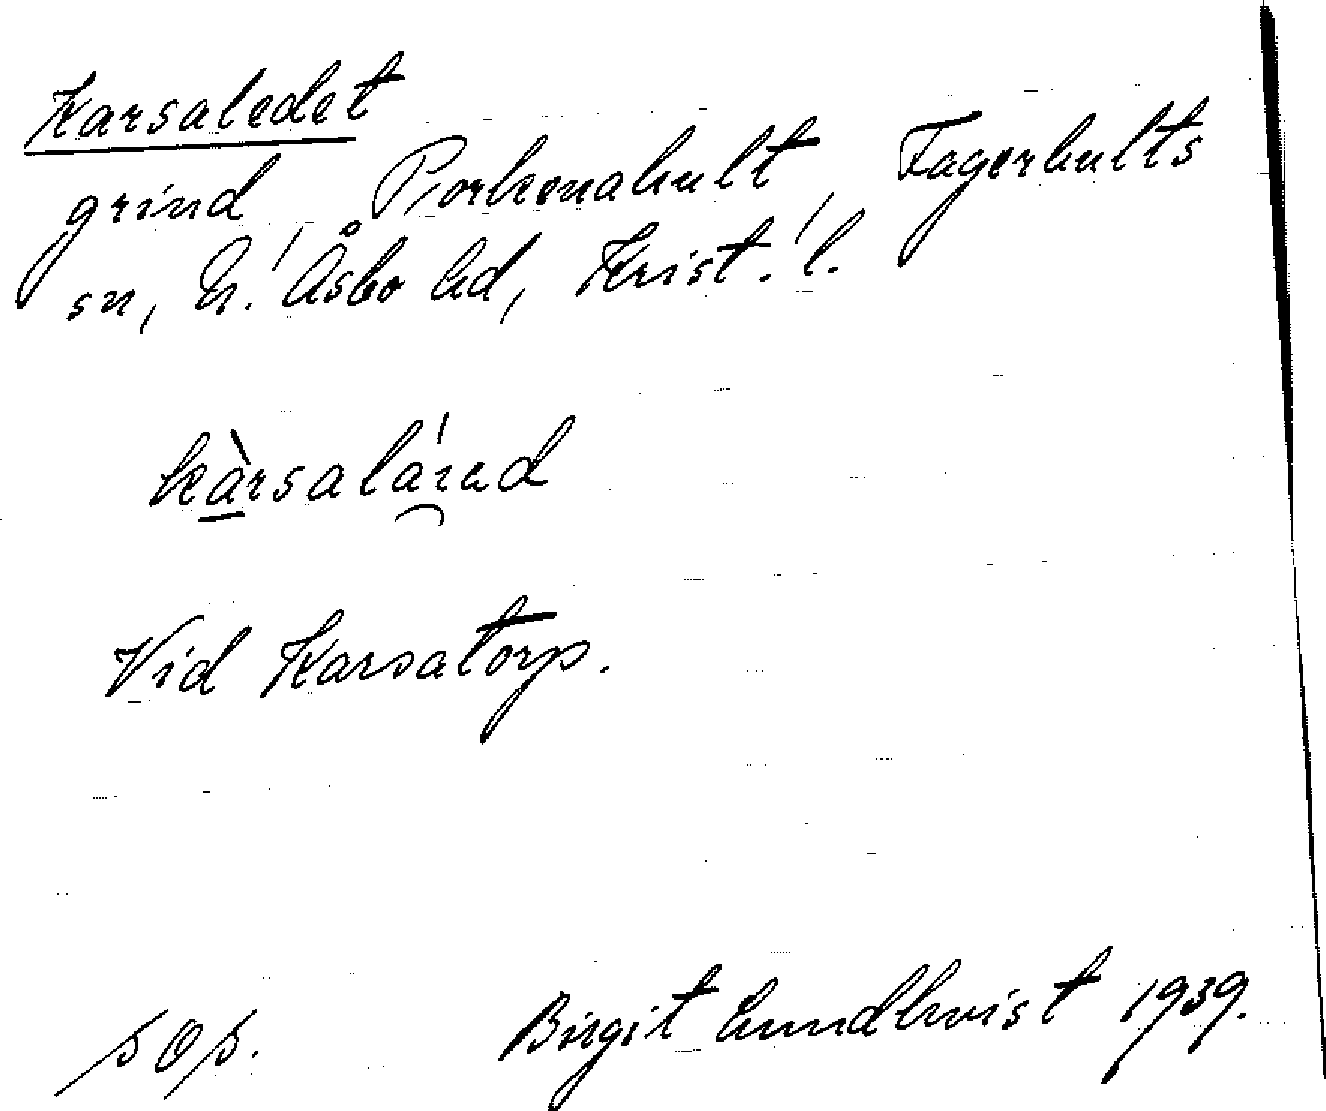 Karsaledet
grind, Porkenahult, Fagerhults
sn, N. Åsbo hd, Krist. l.
kàrsaláed
Vid Karsatorp.
Birgit Lundkvist 1939.